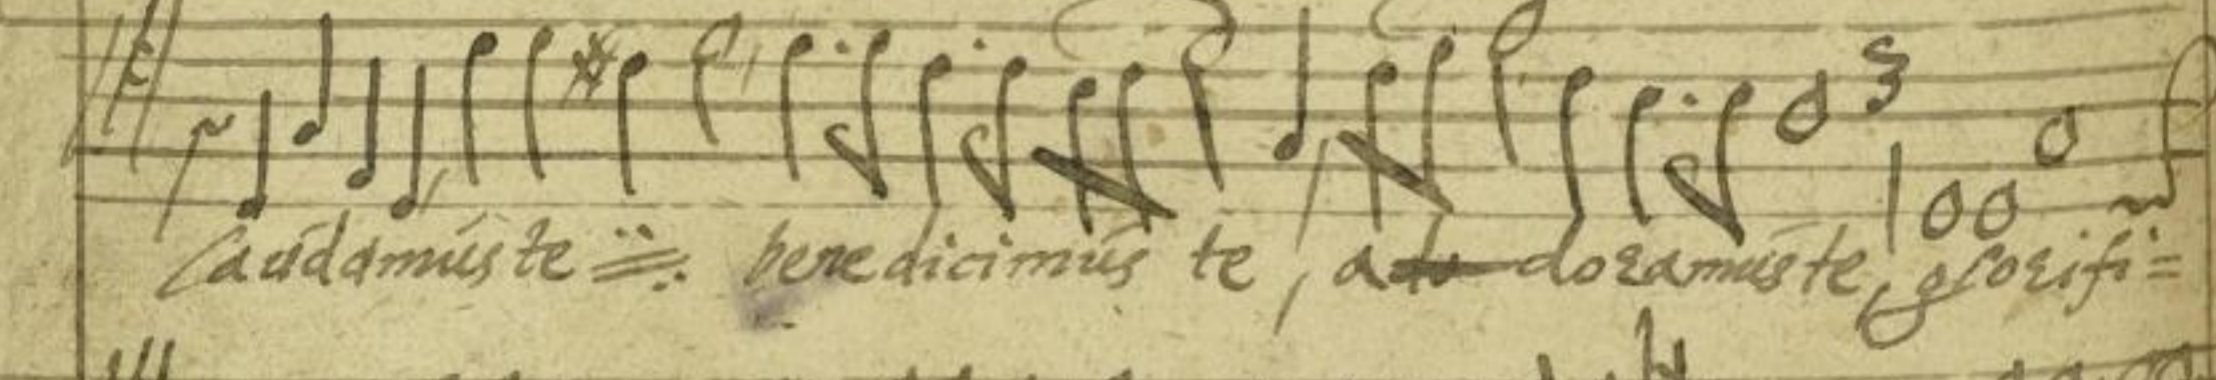 Laudamus te ÷ benedicimus te, ado doramus te, glorifi=